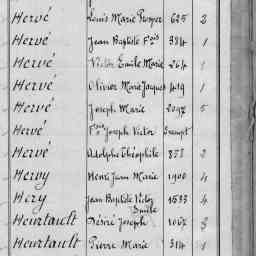 Hervé Louis Marie Prosper 625 2
Hervé Jean Baptiste Fçois 384 1
Hervé Victor Emile Marie 264 1
Hervé Olivier Marie Jacques 419 1
Hervé Joseph Marie 2097 5
Hervé Joseph Victor Exempt
Hervé Adolphe Théophile 2
Hervy Henri Jean Marie 1900 4
Héry Jean Baptiste Victor Emile 1533 4
Heurtault Désiré Joseph 1067 3
Heurtault Pierre Marie 314 1